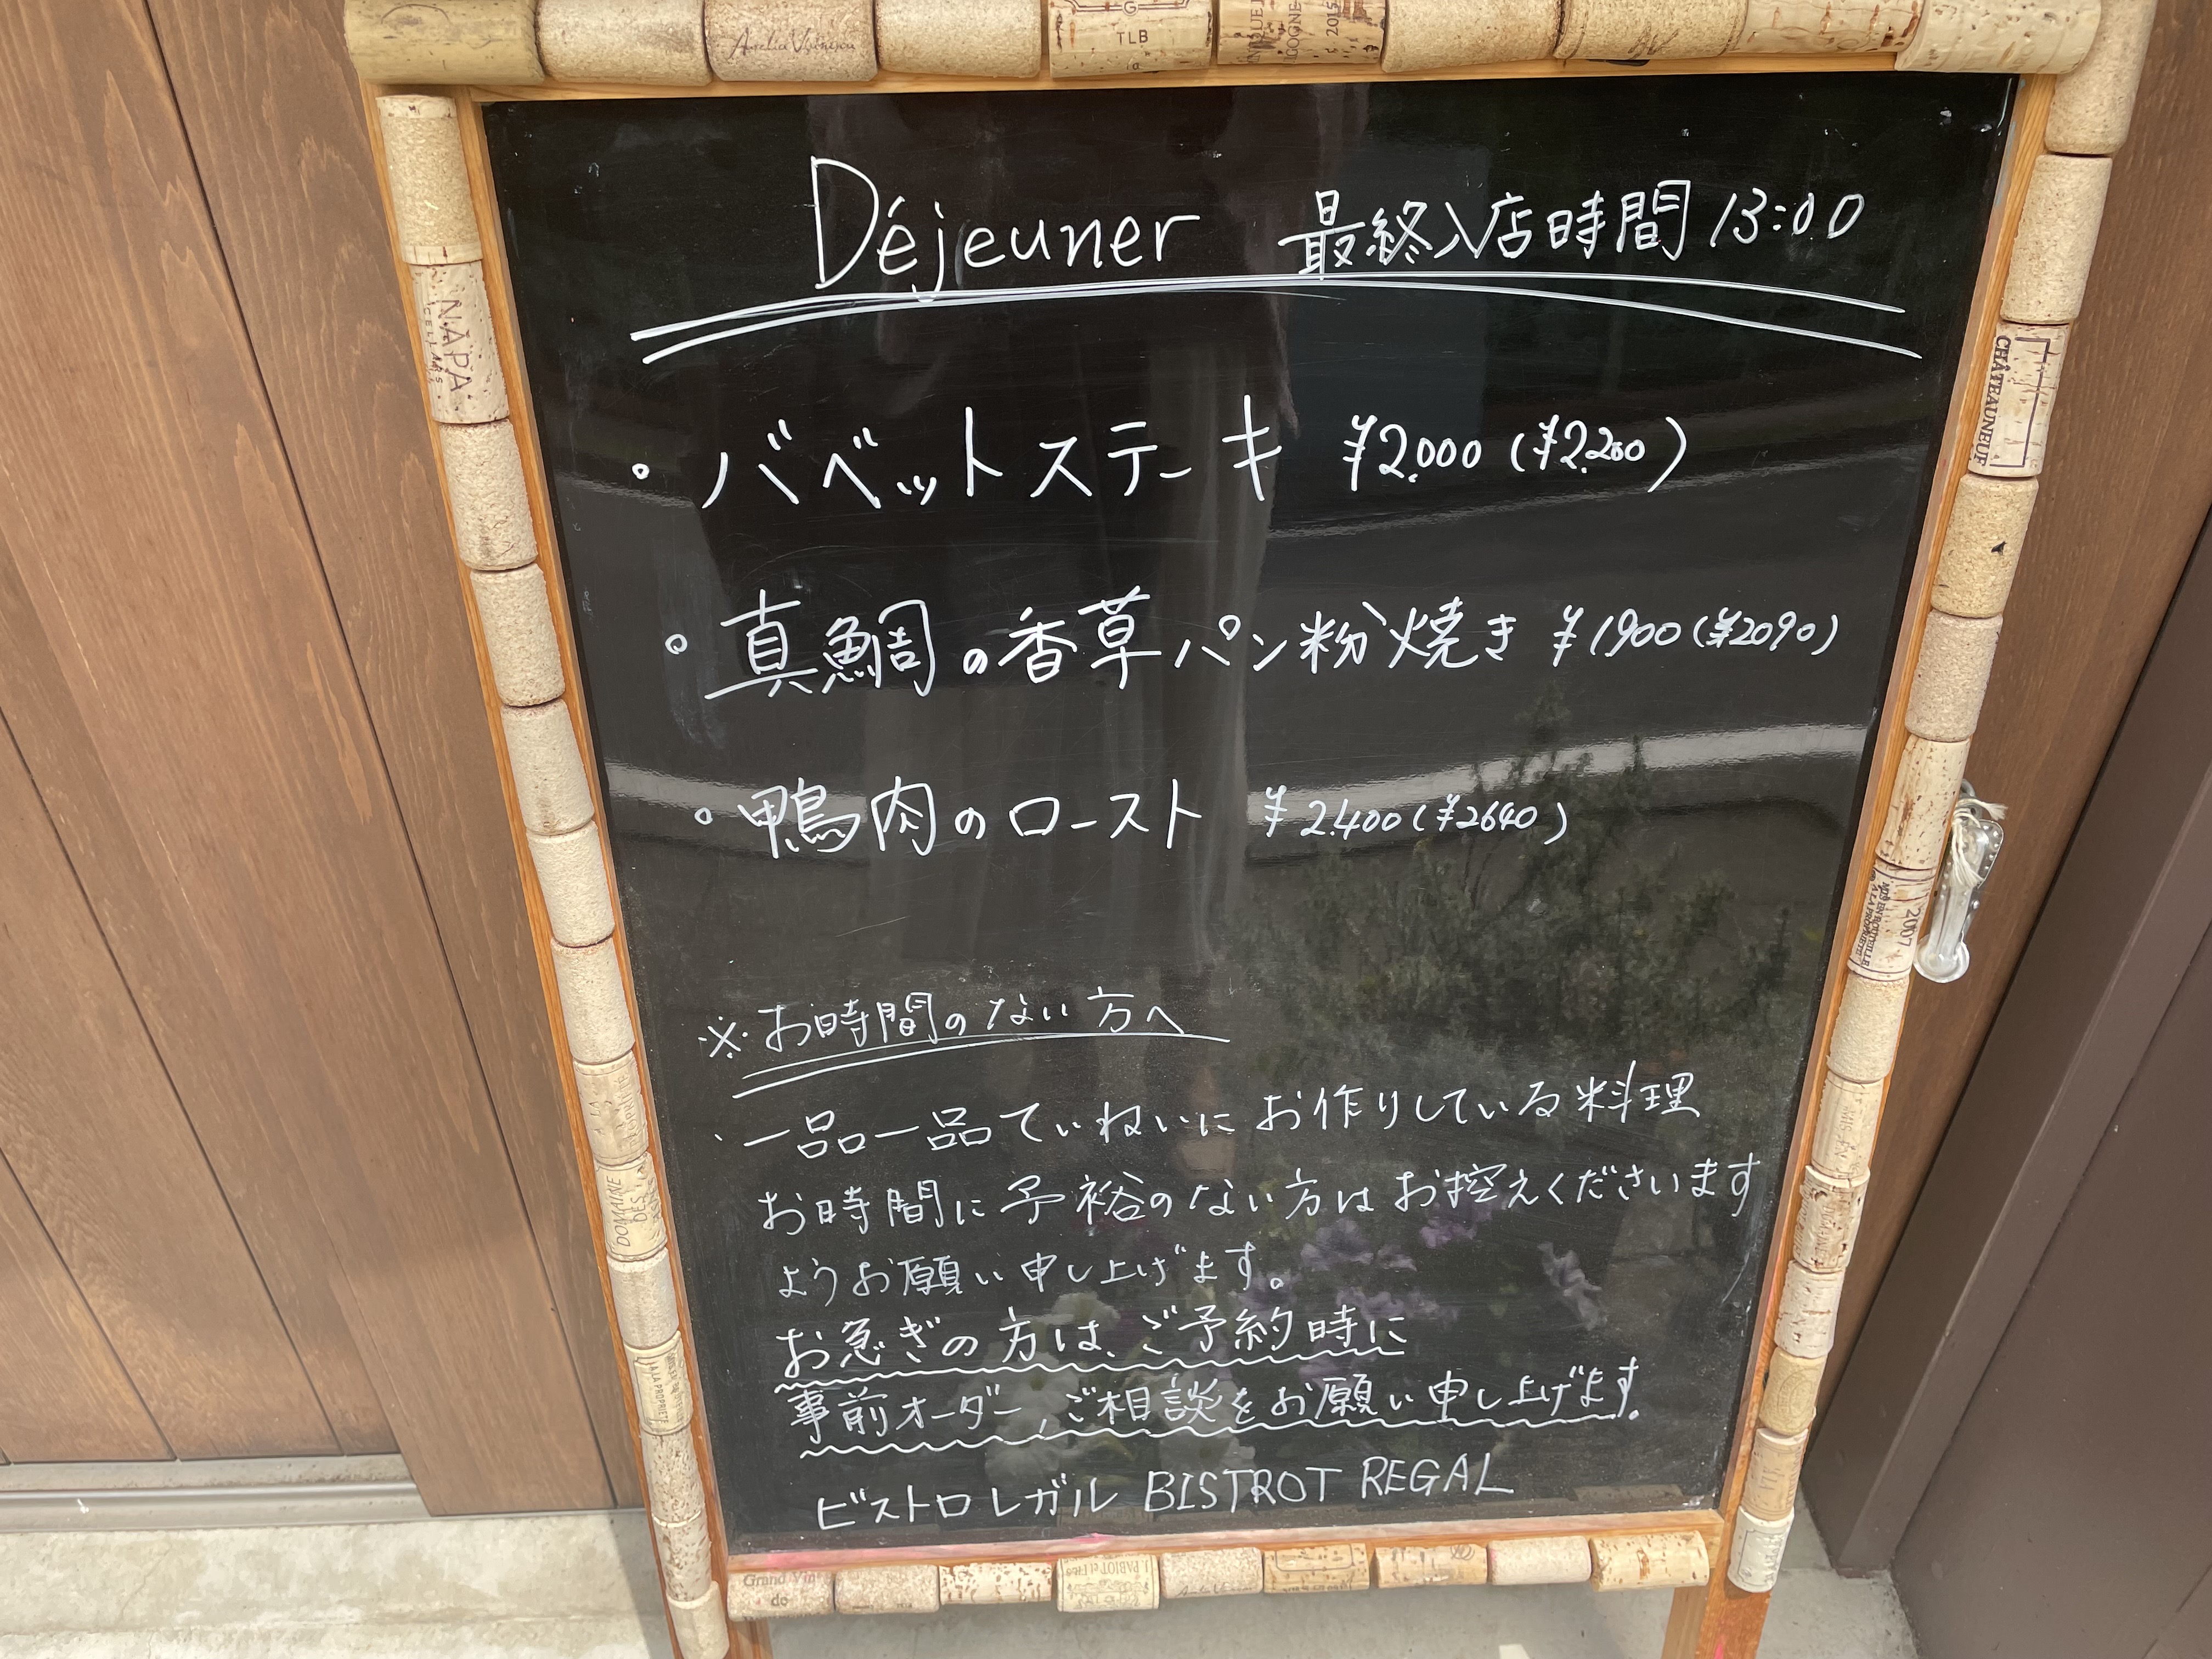 Aurelia Visinescu
TLB
2015
NAPA
CELLARS
CHÂTEAUNEUF
Déjeuner 最終入店時間 13:00
・バベットステーキ ¥2.000 (¥2.200)
・真鯛の香草パン粉焼き ¥1900 (¥2090)
・鴨肉のロースト ¥2.400 (¥2640)
2007
MIS EN BOUTEILLE
A LA PROPRIETE
※お時間のない方へ
・一品一品ていねいにお作りしている料理
お時間に予裕のない方はお控えくださいます
ようお願い申し上げます。
お急ぎの方は、ご予約時に
事前オーダー、ご相談をお願い申し上げます。
ビストロレガル BISTROT REGAL
DOMAINE
DES
A LA PROPRIETE
Grand Vin
do